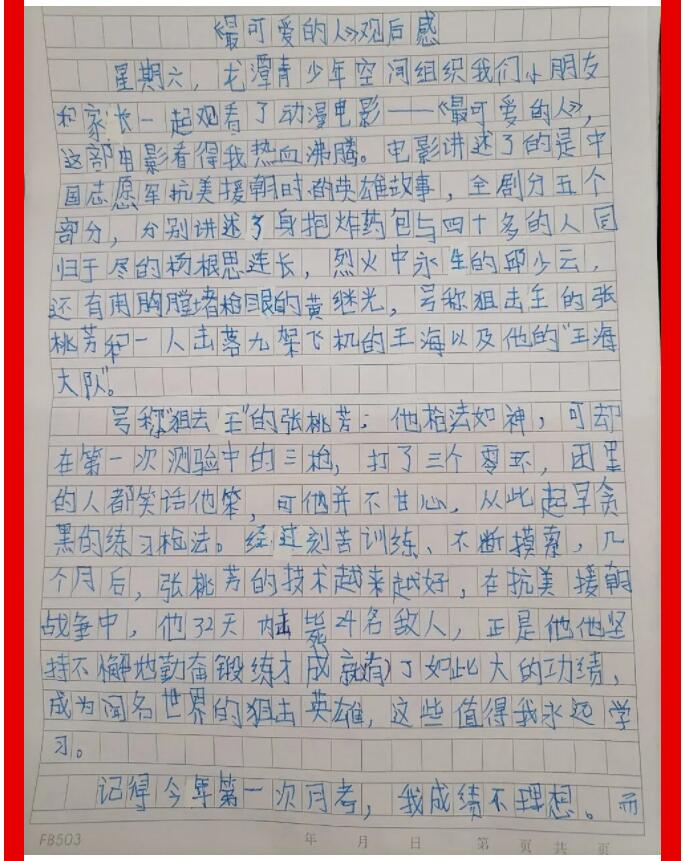 《最可爱的人》观后感
星期六，龙潭青少年空间组织我们小朋友
和家长一起观看了动漫电影——《最可爱的人》，
这部电影看得我热血沸腾。电影讲述了的是中
国志愿军抗美援朝时的英雄故事，全剧分五个
部分，分别讲述了身抱炸药包与四十多的人同
归于尽的杨根思连长，烈火中永生的邱少云，
还有用胸膛堵枪眼的黄继光，号称狙击王的张
桃芳和一人击落九架飞机的王海以及他的"王海
大队"。
号称"狙击王"的张桃芳；他枪法如神，可却
在第一次测验中的三枪，打了三个零环，团里
的人都笑话他笨，可他并不甘心，从此起早贪
黑的练习枪法。经过刻苦训练、不断摸索，几
个月后，张桃芳的技术越来越好，在抗美援朝
战争中，他32天内击毙24名敌人，正是他他坚
持不懈地勤奋锻练才成就有了如此大的功绩，
成为闻名世界的狙击英雄，这些值得我永远学
习。
记得今年第一次月考，我成绩不理想。而
FB503 年 月 日 第 页 共 页